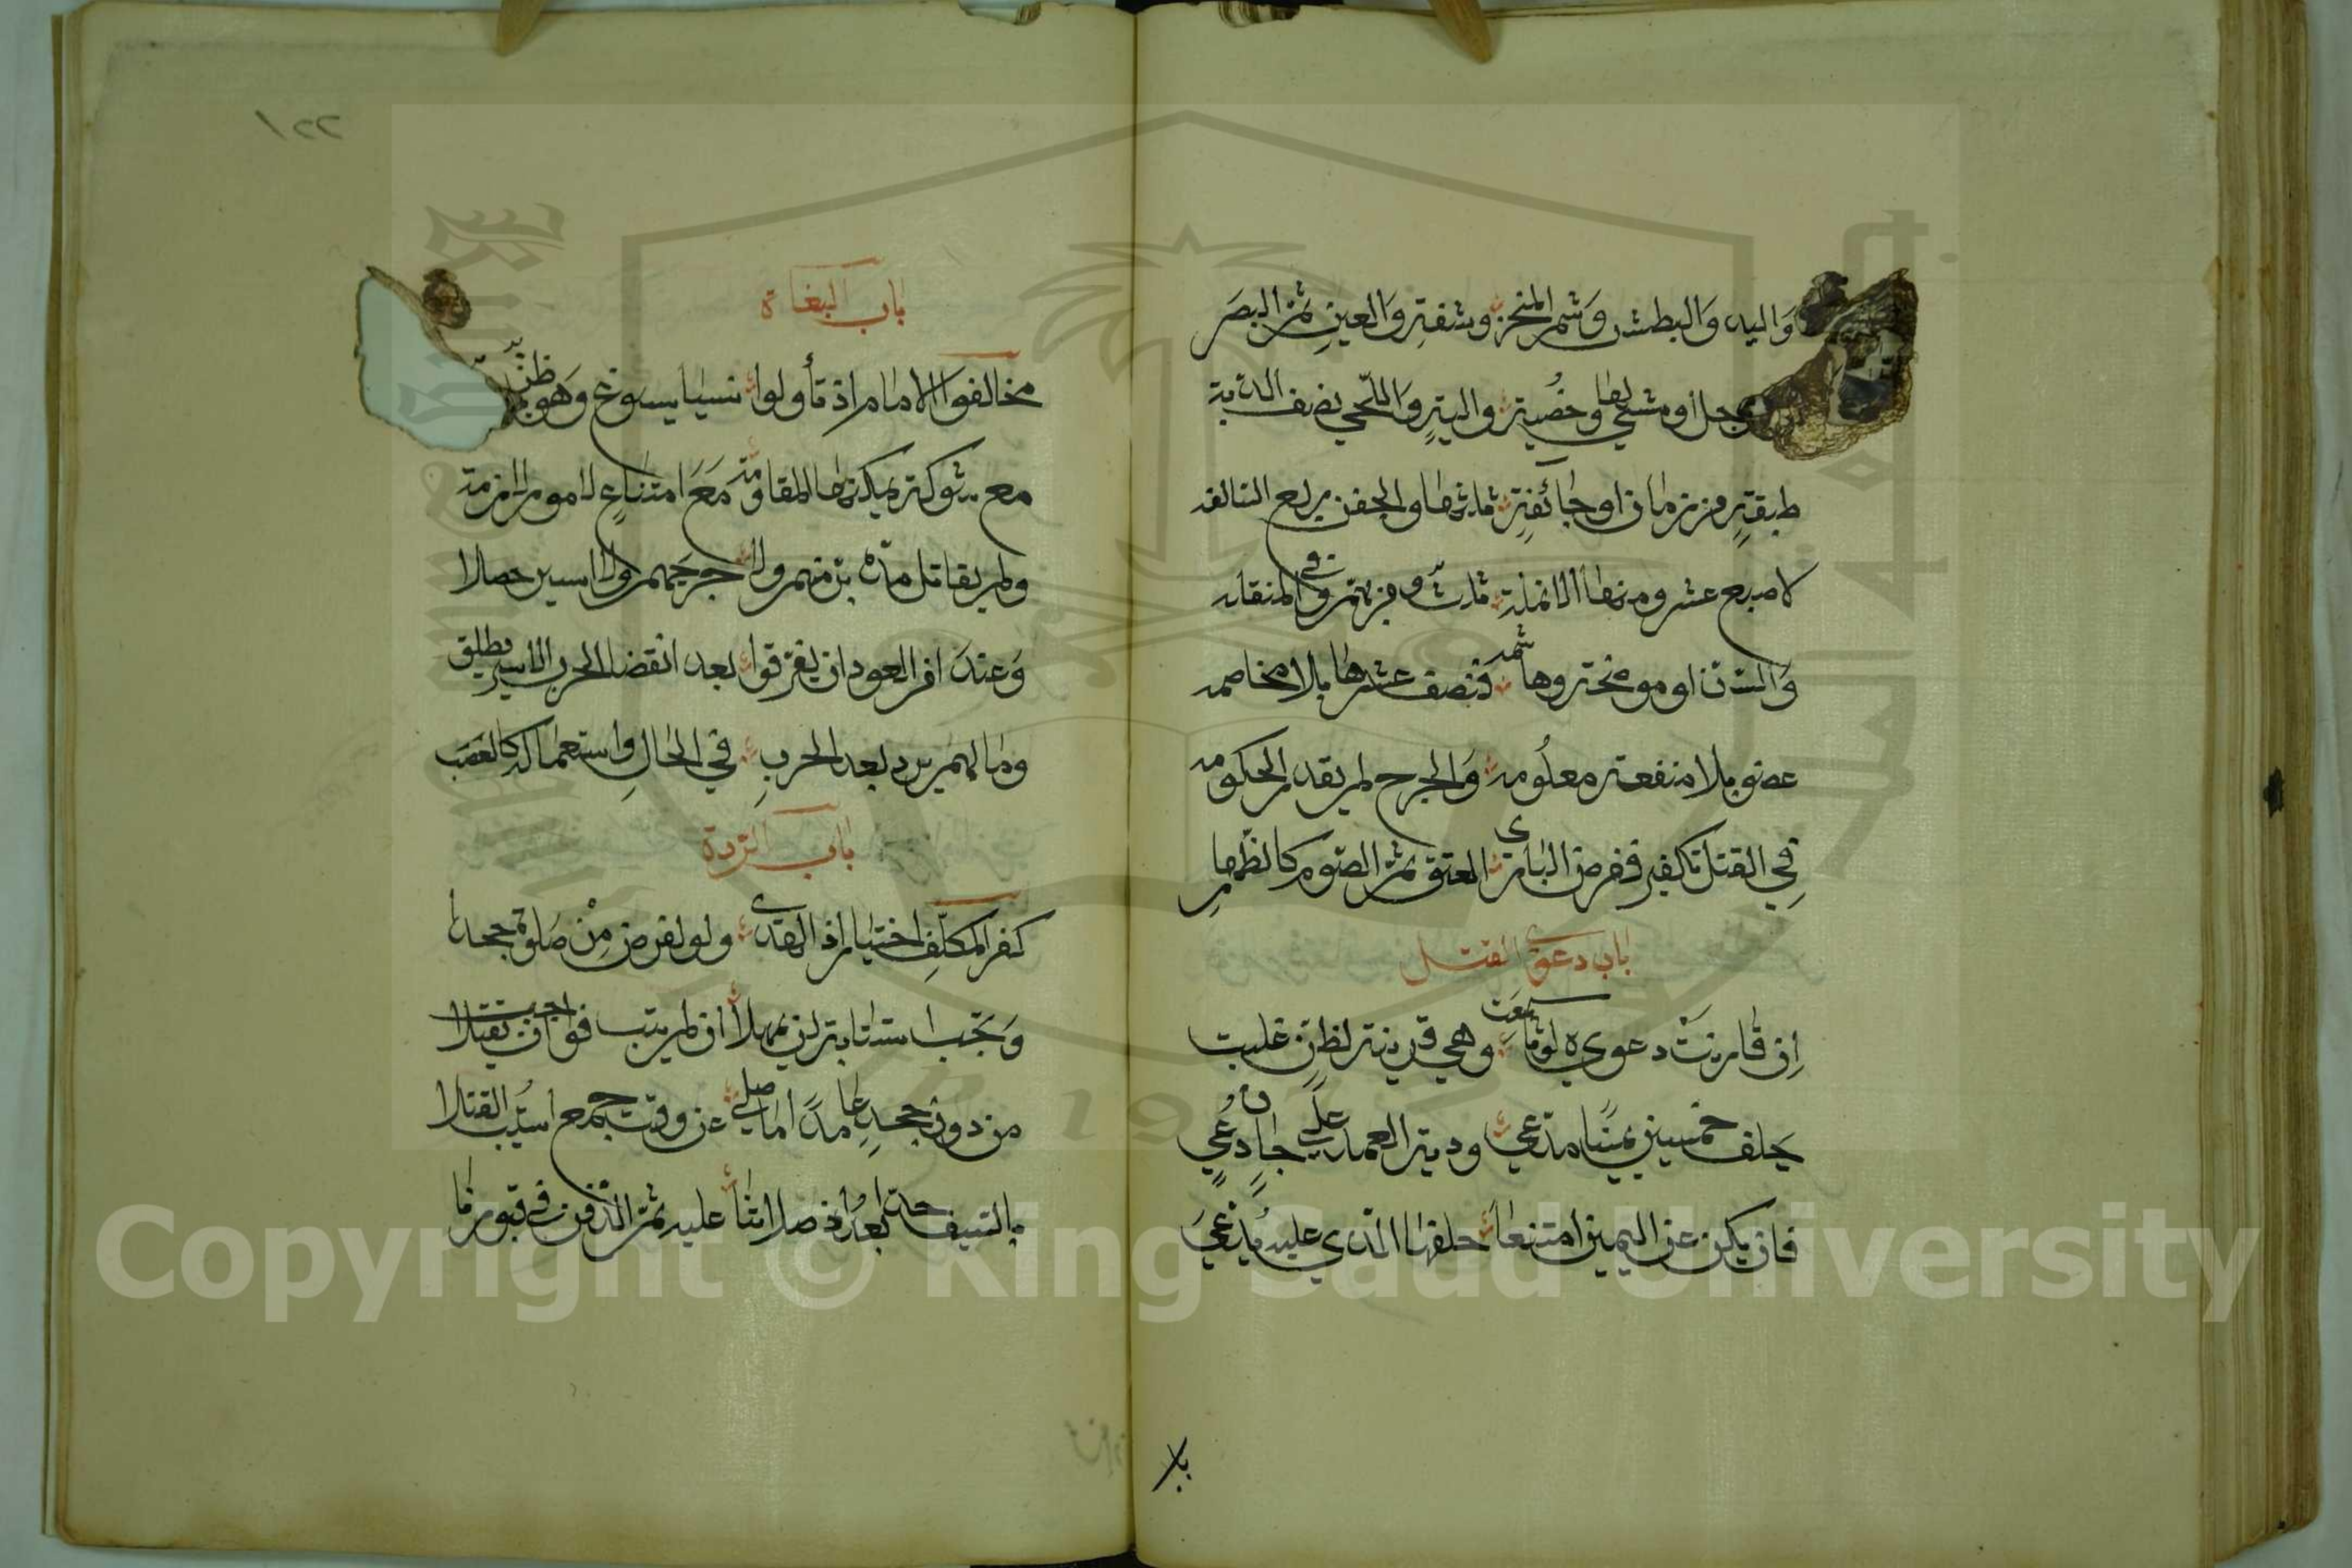 واليد والبطش وشم المنخر وشفة والعين ثم البصر
رجل أو مشي لها وخصية والية واللحي نصف الدية
طبقة من مازن او جائفة ثلثها والجفن ربع السالفه
لاصبع عشر ومنها الانملة ثلث وفي بهم وفي المنقله
والسن او موضحة وهاشمه فنصف عشرها بلا مخاصمه
عضو بلا منفعة معلومه والجرح لم يقدر الحكومه
في القتل تكفير ففرض الباري العتق ثم الصوم كالظهار
باب دعوى القتل
إن قارنت دعوى لوث سمعت وهي قرينة لظن غلبت
يحلف خمسين يمينا مدعي ودية العمد على جان دعي
فان يكن عن اليمين امتنعا حلفها الذي عليه يدعى
بلا
١٢٢
باب البغاة
مخالفوا الامام اذ تأولوا شيا يسوغ وهو ظن
مع شوكة يمكنها المقاومة مع امتناع لامور لازمة
ولم يقاتل مدبر منهم ولا جريحهم ولا اسير حصلا
وعند امر العود ان يفرقوا بعد انقضا الحرب الاسير يطلق
ومالهم يرد بعد الحرب في الحال واستعماله كالغصب
باب الردة
كفر المكلف اختيارا ذا هدى ولو لفرض من صلوة جحدا
وتجب استتابة لن يمهلا ان لم يتب فواجب ان يقتلا
من دون جحد عامدا ما صلى عن وقت جمع استتب القتلا
بالسيف حدا بعد ذا صلاتنا عليه ثم الدفن في قبورنا
Copyright © King Saud University